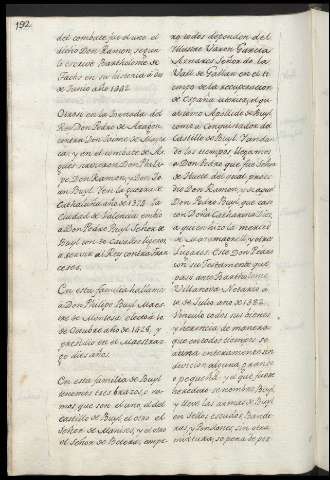 192
del combate fue el uno el
dicho Don Ramon, segun
lo escrive Bartholome de
Facho en su historia à do
de Junio año 1442.
Otrosi en la Jornada del
Rey Don Pedro de Aragon
contra Don Jaime de Mayor
ca, y en el combate de Ar
gules sirvieron Don Phelip
pe Don Ramon, y Don Jo
an Buyl. Y en la guerra de
Cathaluña año de 1372. la
Ciudad de Valencia embio
a Don Pedro Buyl Señor de
Buyl con 30 Cavallos ligeros,
a servir al Rey contra Fran
ceses,
En esta familia hallamos
a Don Phelipe Buyl Maes
tre de Montesa electo à 10
de Octubre año de 1429. y
presidio en el Maestraz
go diez años.
En esta familia de Buyl
tenemos tres brazos, o ra
mas que son el uno, el del
castillo de Buyl, el otro el
Señor de Manises, y el otro
el Señor de Betera, empe
ro todos dependen del
Illustre Varon Garcia
Aznares Señor de la
Vall de Gallan en el ti
empo de la recuperacion
de España
tomo el Apellido de Buyl
como à Conquistador del
Castillo de Buyl. Y andan
do los tiempos llegamos
a Don Pedro que fue Señor
de Huete del qual proce
dio Don Ramon, y de aquel
Don Pedro Buyl que caso
con Doña Catharina Diez,
a quien hizo la merced
de y otros
Lugares. Este Don Pedro
con su Testamento que
passò ante Bartholome
Villanova Notario à
10 de Julio año de 1382.
Vinculo todos sus bienes
y herencia de manera
que en todos tiempos se
a una enteramente sin
division alguna grande
o pequeña: y el que fuere
heredero se nombre Buyl
y lleve las armas de Buyl
en Sellos, escudos, Bande
ras, y Pendones, sin otra
mixtura, so pena de per